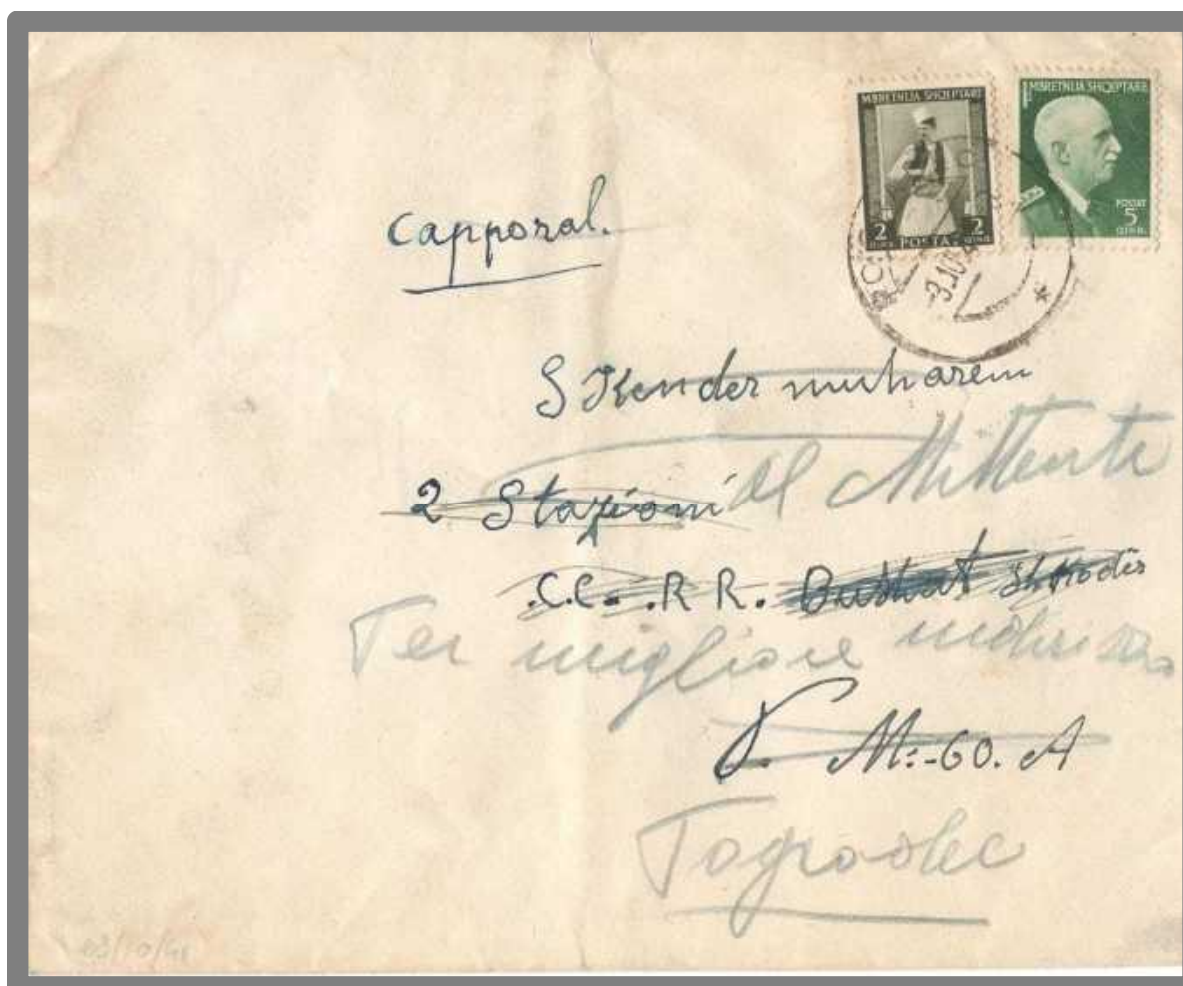 MBRETNIJA SHQIPTARE
2 POSTA 2
QIND. QIND.
MBRETNIJA SHQIPTARE
POSTAT
5
QIND.
-3.10
Capporal.
SKender muharem
Al Mittente
2 Stazioni
.C.C. .R R. Bushat Shkodër
Per migliore indirizzo
P. M:-60. A
Pogradec
03/10/41